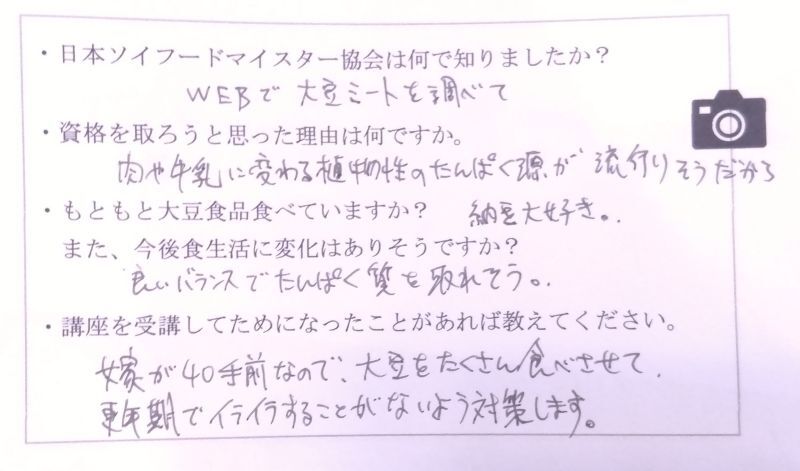 ・日本ソイフードマイスター協会は何で知りましたか？
WEBで 大豆ミートを調べて
・資格を取ろうと思った理由は何ですか。
肉や牛乳に変わる植物性のたんぱく源が 流行りそうだから
・もともと大豆食品食べていますか？ 納豆大好き。
また、今後食生活に変化はありそうですか？
良いバランスでたんぱく質を取れそう。
・講座を受講してためになったことがあれば教えてください。
嫁が40手前なので、大豆をたくさん食べさせて、
更年期でイライラすることがないよう対策します。